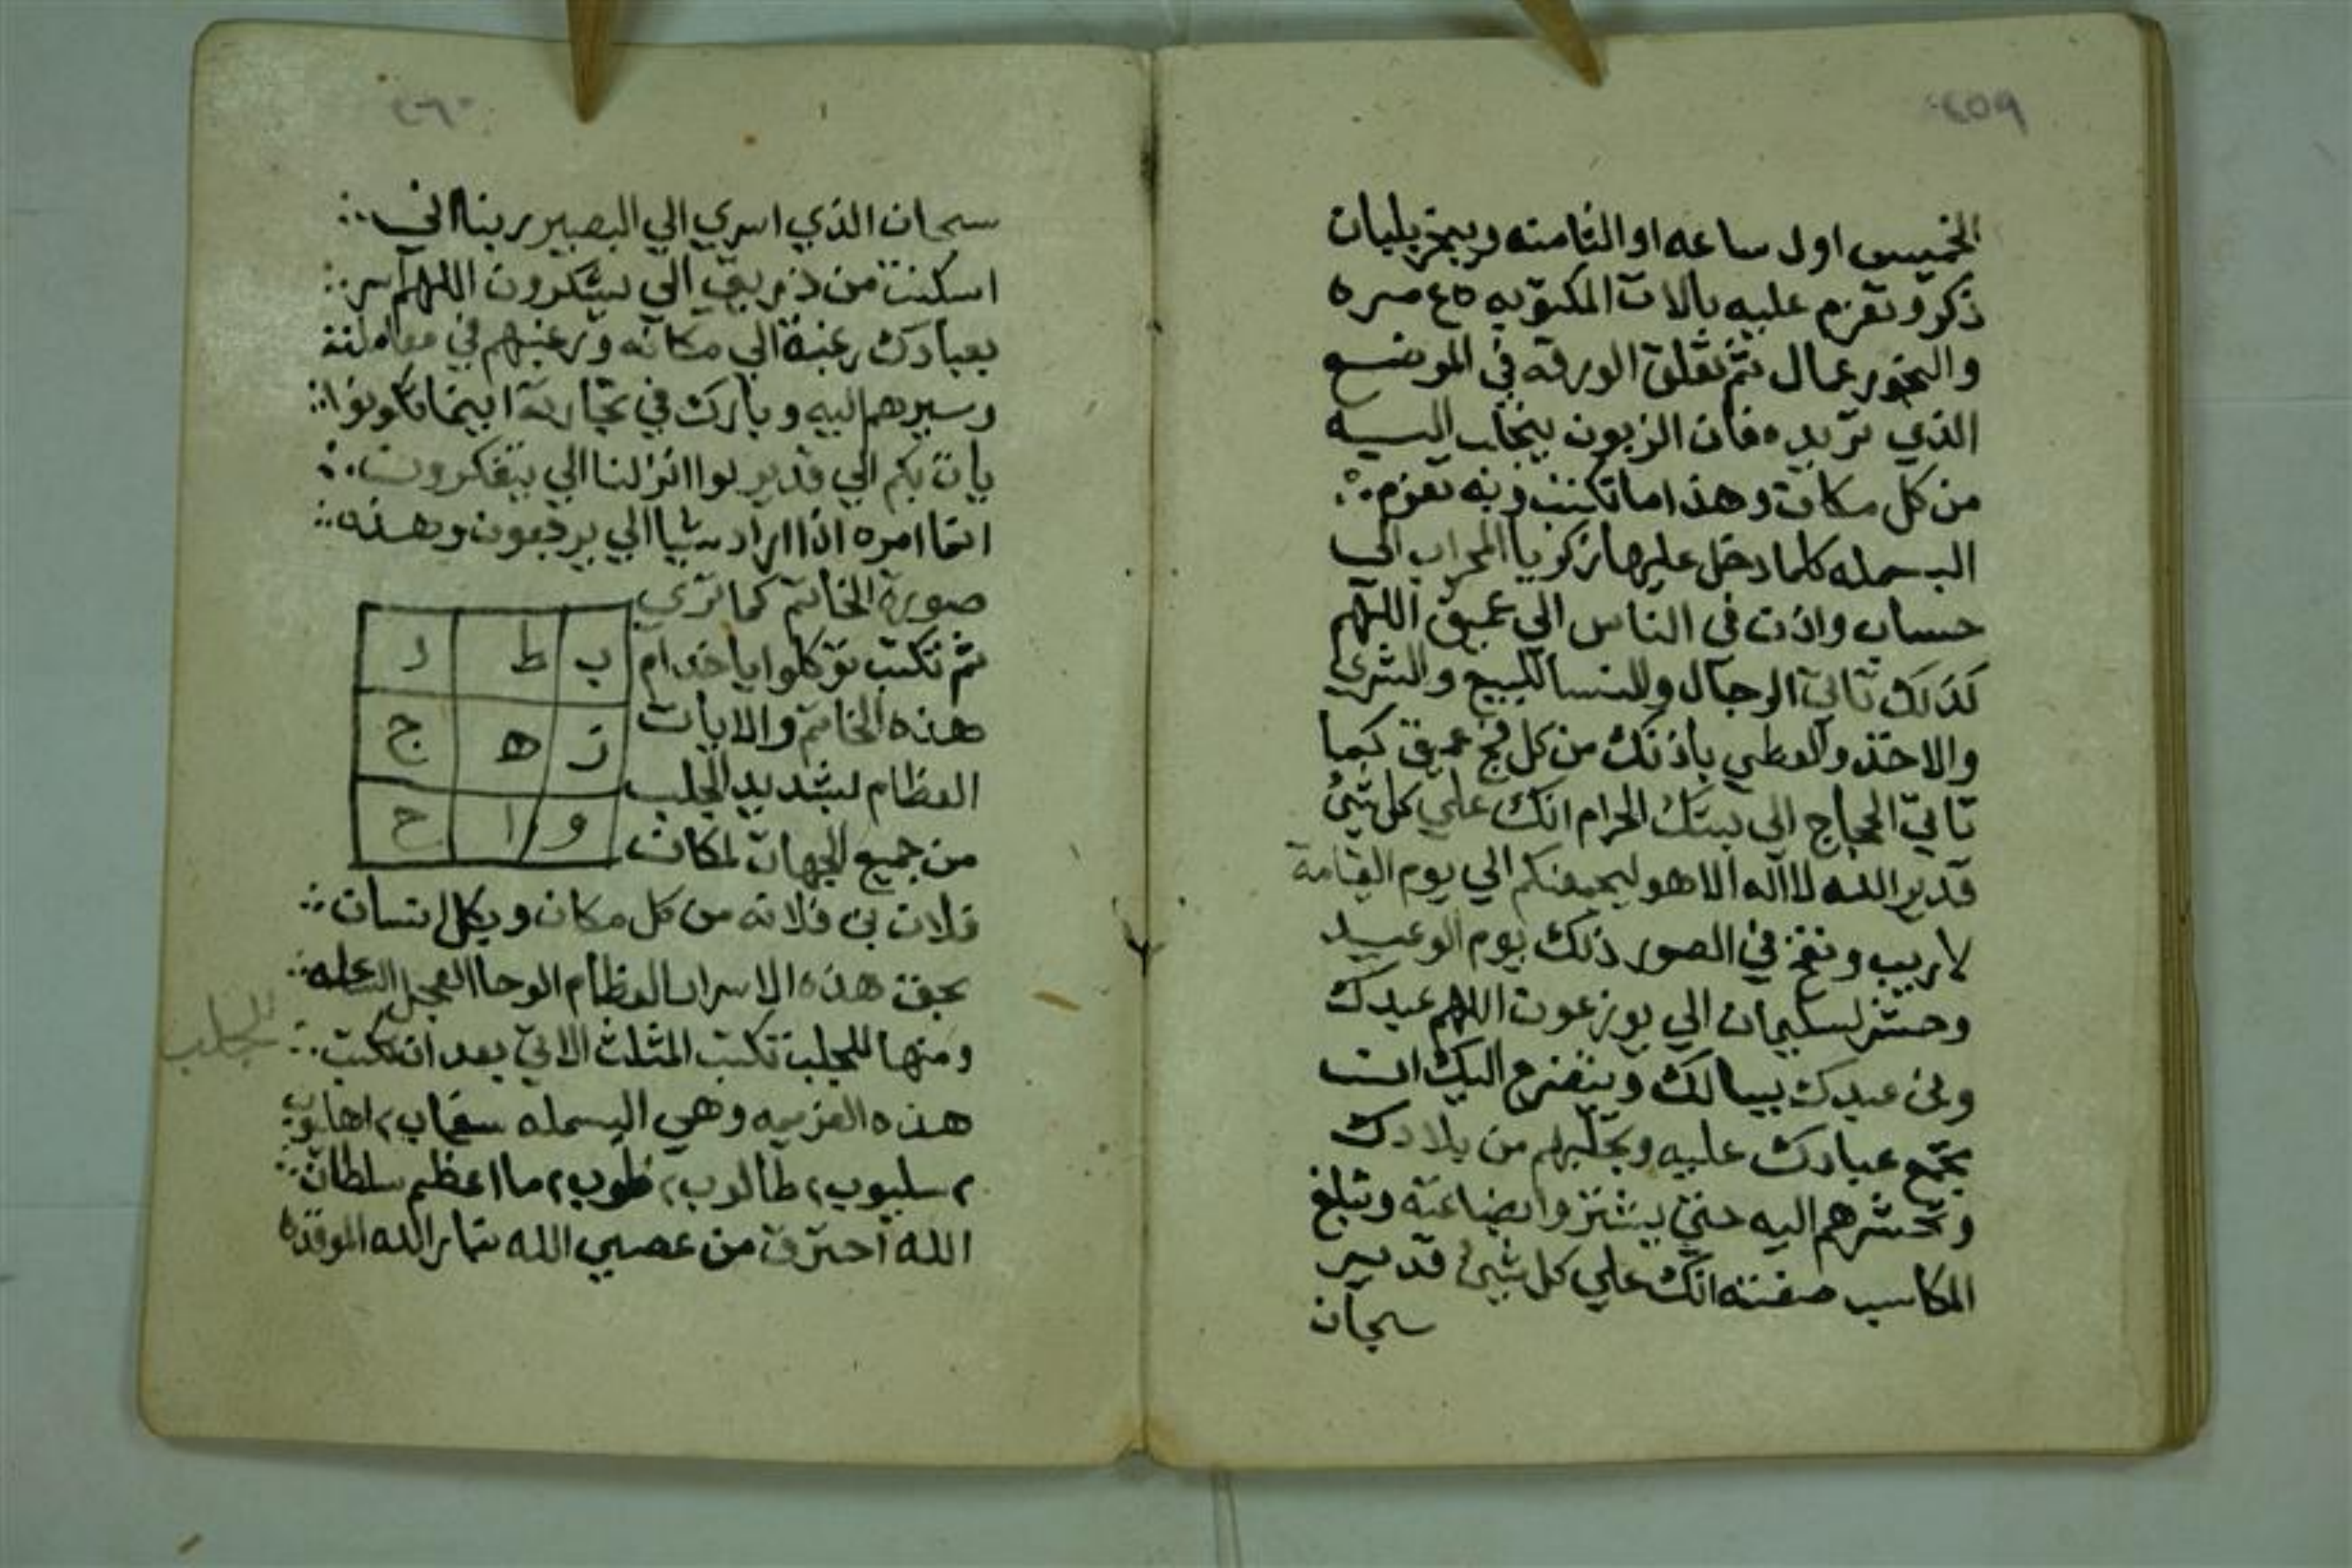 ٢٥٩
الخميس اول ساعه او الثامنه ويبخر بلبان
ذكر وتعزم عليه بالات المكتوبه ٤٥ مره
والبخور عمال ثم تعلق الورقه في الموضع
الذي تريده فان الزبون ينجلب اليه
من كل مكان وهذا ما تكتب وبه تعزم
البسمله كلما دخل عليها زكريا المحراب الي
حساب واذن في الناس الي عميق اللهم
كذلك تاتي الرجال والنسا للبيع والشري
والاخذ والعطي باذنك من كل فج عميق كما
تاتي الحجاج الي بيتك الحرام انك علي كل شئ
قدير الله لا اله الا هو ليجمعنكم الي يوم القيامة
لا ريب ونفخ في الصور ذلك يوم الوعيد
وحشر لسليمان الي يوزعون اللهم عبدك
وبن عبدك يسالك ويتضرع اليك ان
تجمع عبادك عليه وتجلبهم من بلادك
وتحشرهم اليه حتي يشتروا بضاعته وتبلغ
المكاسب صفته انك علي كل شئ قدير
سبحان
٢٦٠
سبحان الذي اسري الي البصير ربنا اني
اسكنت من ذريتي الي يشكرون اللهم اسر
بعبادك رغبة الي مكانه ورغبهم في معاملته
وسيرهم اليه وبارك في تجارته اينما تكونوا
يات بكم الي قدير لو انزلنا الي يتفكرون
انما امره اذا اراد شيا الي يرجعون وهذه
صورة الخاتم كما تري
ثم تكتب توكلوا يا خدام
هذه الخاتم والايات
العظام بشديد الجلب
من جميع الجهات لمكان
ب ط د
ز ه ج
و ا ح
فلان بن فلانه من كل مكان وبكل انسان
بحق هذه الاسرار العظام الوحا العجل الساعه
ومنها للجلب تكتب المثلث الاتي بعد ان تكتب
للجلب
هذه العزيمه وهي البسمله
٢ سليوب ٢ طالوب ٢ طوب ٢ ما اعظم سلطان
الله احترق من عصي الله بنار الله الموقده